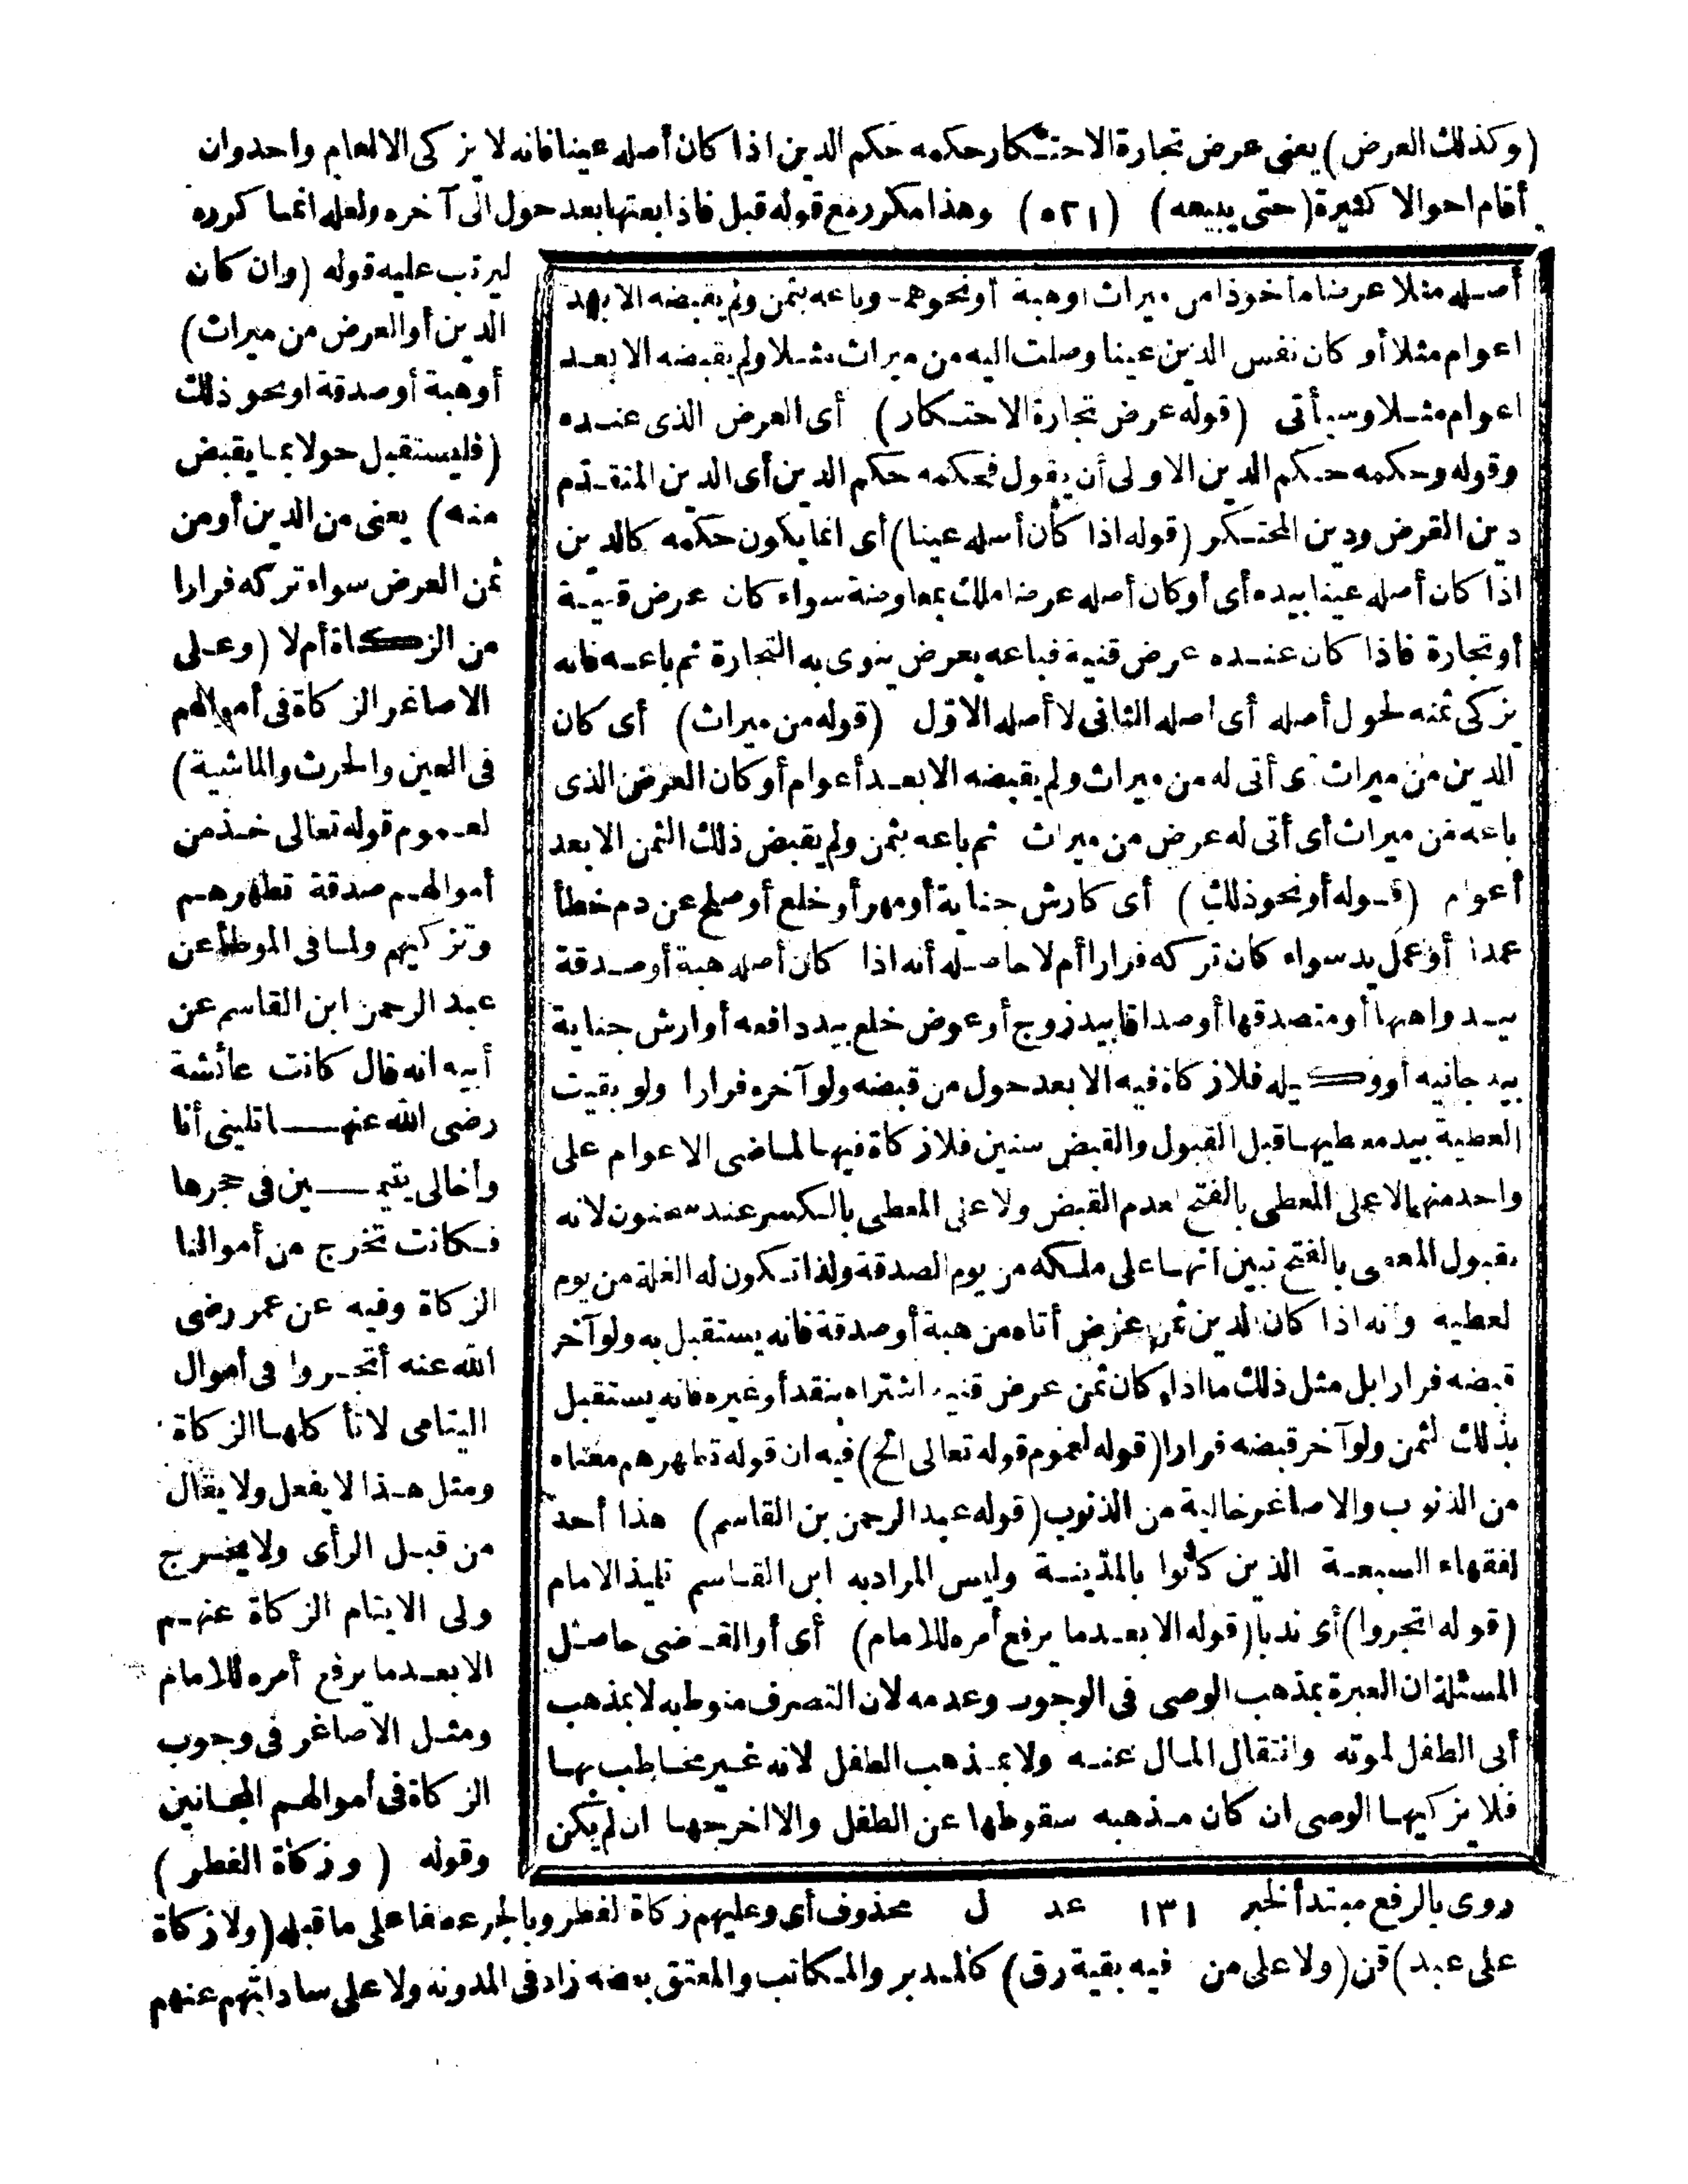 (وكذلك العرض) يعنى عرض تجارة الاحتكار حكمه حكم الدين اذا كان أصله عينا فانه لا يزكى الا لعام واحد وان
أقام احوالا كثيرة (حتى يبيعه) (٥٢١) وهذا مكرر مع قوله قبل فاذا بعتها بعد حول الى آخره ولعله انما كرره
ليرتب عليه قوله (وان كان
الدين أو العرض من ميراث)
أو هبة أو صدقة او نحو ذلك
(فليستقبل حولا بما يقبض
منه) يعنى من الدين أو من
ثمن العرض سواء تركه فرارا
من الزكاة أم لا (وعلى
الاصاغر الزكاة فى أموالهم
فى العين والحرث والماشية)
لعموم قوله تعالى خذ من
أموالهم صدقة تطهرهم
وتزكيهم ولما فى الموطأ عن
عبد الرحمن ابن القاسم عن
أبيه انه قال كانت عائشة
رضى الله عنها تلينى أنا
وأخالى يتيمين فى حجرها
فكانت تخرج من أموالنا
الزكاة وفيه عن عمر رضى
الله عنه أتجروا فى أموال
اليتامى لا تأكلها الزكاة
ومثل هذا لا يفعل ولا يقال
من قبل الرأى ولا يخرج
ولى الايتام الزكاة عنهم
الا بعد ما يرفع أمره للامام
ومثل الاصاغر فى وجوب
الزكاة فى أموالهم المجانين
وقوله (وزكاة الفطر)
روى بالرفع مبتدأ لخبر ١٣١ عد ل محذوف أى وعليهم زكاة الفطر وبالجر عطفا على ما قبله (ولا زكاة
على عبد) قن (ولا على من فيه بقية رق) كالمدبر والمكاتب والمعتق بعضه زاد فى المدونه ولا على ساداتهم عنهم
أصله مثلا عرضا مأخوذا من ميراث او هبة أو نحوهما وباعه بثمن ولم يقبضه الا بعد
اعوام مثلا أو كان نفس الدين عينا وصلت اليه من ميراث مثلا ولم يقبضه الا بعد
اعوام مثلا وسيأتى (قوله عرض تجارة الاحتكار) أى العرض الذى عنده
وقوله وحكمه حكم الدين الاولى أن يقول فحكمه حكم الدين أى الدين المتقدم
دين القرض ودين المحتكر (قوله اذا كان أصله عينا) أى انما يكون حكمه كالدين
اذا كان أصله عينا بيده أى أو كان أصله عرضا ملك بمعاوضة سواء كان عرض قنية
أو تجارة فاذا كان عنده عرض قنية فباعه بعرض ينوى به التجارة ثم باعه فانه
يزكى ثمنه لحول أصله أى اصله الثانى لا أصله الاول (قوله من ميراث) أى كان
الدين من ميراث أى أتى له من ميراث ولم يقبضه الا بعد أعوام أو كان العرض الذى
باعه من ميراث أى أتى له عرض من ميراث ثم باعه بثمن ولم يقبض ذلك الثمن الا بعد
أعوام (قوله أو نحو ذلك) أى كارش جناية أو مهر أو خلع أو صلح عن دم خطأ
عمدا أو عمل يد سواء كان تركه فرارا أم لا حاصله أنه اذا كان أصله هبة أو صدقة
بيد واهبها أو متصدقها أو صداقا بيد زوج أو عوض خلع بيد دافعه أو ارش جناية
بيد جانيه أو وكيله فلا زكاة فيه الا بعد حول من قبضه ولو آخره فرارا ولو بقيت
العطية بيد معطيها قبل القبول والقبض سنين فلا زكاة فيها لماضى الاعوام على
واحد منهما لا على المعطى بالفتح لعدم القبض ولا على المعطى بالكسر عند سحنون لانه
بقبول المعطى بالفتح تبين انها على ملكه من يوم الصدقة ولذا تكون له الغلة من يوم
لعطية وانه اذا كان الدين ثمن عرض أتاه من هبة أو صدقة فانه يستقبل به ولو آخر
قبضه فرارا بل مثل ذلك ما اذا كان ثمن عرض قنية اشتراه بنقد أو غيره فانه يستقبل
بذلك لثمن ولو آخر قبضه فرارا (قوله لعموم قوله تعالى الخ) فيه ان قوله تطهرهم معناه
من الذنوب والاصاغر خالية من الذنوب (قوله عبد الرحمن بن القاسم) هذا أحد
لفقهاء السبعة الذين كانوا بالمدينة وليس المراد به ابن القاسم تلميذ الامام
(قوله اتجروا) أى ندبا (قوله الا بعد ما يرفع أمره للامام) أى أو القاضى حاصل
المسئلة ان العبرة بمذهب الوصى فى الوجوب وعدمه لان التصرف منوط به لا بمذهب
أبى الطفل لموته وانتقال المال عنه ولا بمذهب الطفل لانه غير مخاطب بها
فلا يزكيها الوصى ان كان مذهبه سقوطها عن الطفل والا اخرجها ان لم يكن